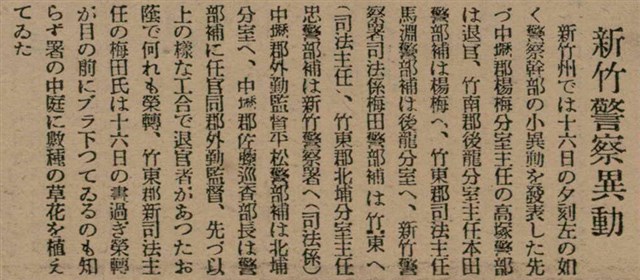 新竹警察異動
新竹州では十六日の夕刻左の如
く警察幹部の小異動を發表した先
づ中壢郡楊梅分室主任の高塚警部
は退官、竹南郡後龍分室主任本田
警部補は楊梅へ、竹東郡司法主任
馬淵警部補は後龍分室へ、新竹警
察署司法係梅田警部補は竹東へ
(司法主任)、竹東郡北埔分室主任
忠警部補は新竹警察署へ(司法係)
中壢郡外勤監督平松警部補は北埔
分室へ、中壢郡佐藤巡査部長は警
部補に任官同郡外勤監督、先づ以
上の樣な工合で退官者があつたお
蔭で何れも榮轉、竹東郡新司法主
任の梅田氏は十六日の晝過ぎ榮轉
が目の前にブラ下つてゐるのも知
らず署の中庭に數種の草花を植ゑ
てゐた